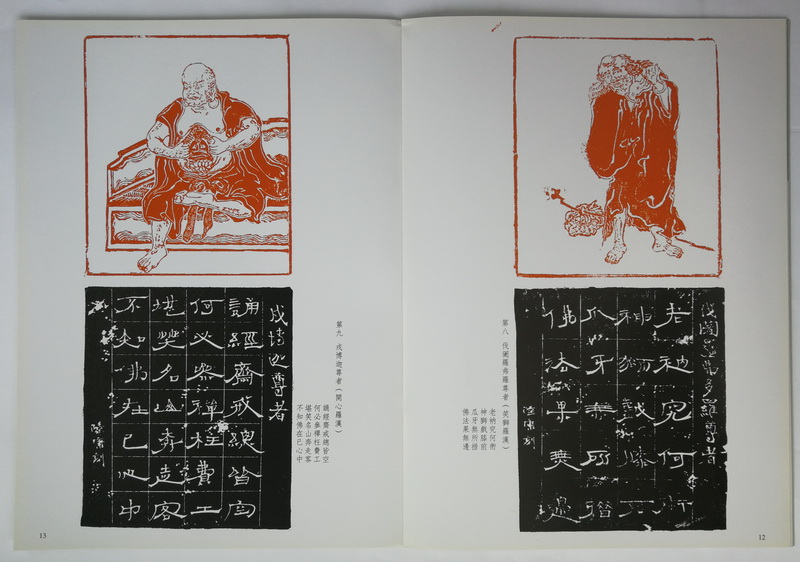 老衲究何術
爪牙無所措
佛法果無邊
第八 伐闍羅弗羅尊者(笑獅羅漢)
老衲究何術
神獅戲膝前
瓜牙無所措
佛法果無邊
12
戎博迦尊者
誦經齋戒總皆空
何必參禪枉費工
堪笑名山奔走客
不知佛在己心中
第九 戎博迦尊者(開心羅漢)
誦經齋戒總皆空
何必參禪枉費工
堪笑名山奔走客
不知佛在己心中
13